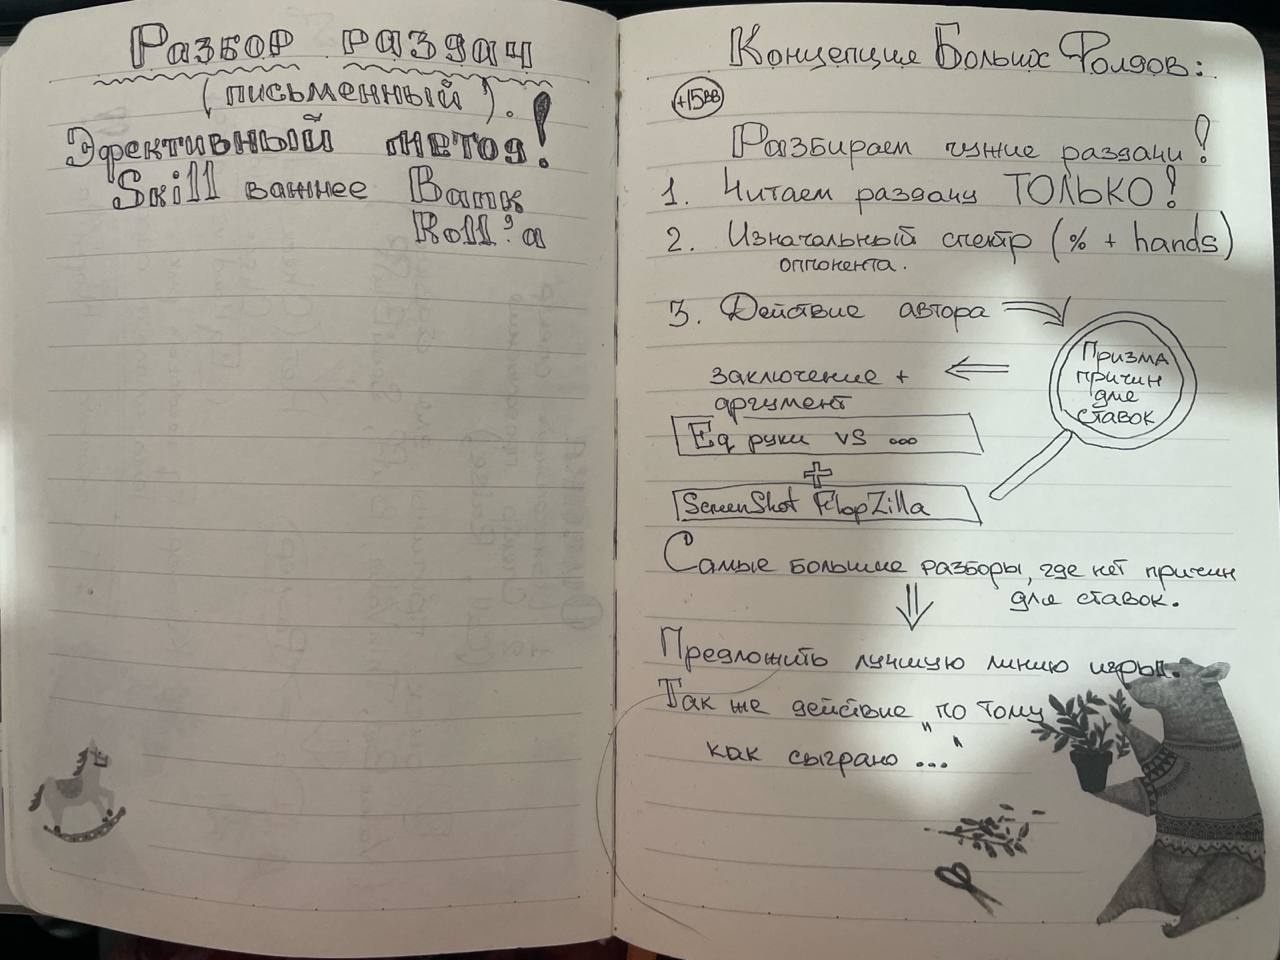 Разбор раздач
(письменный).
Эфективный метод!
Skill важнее Bank
Roll'a
Концепция Больих Фолдов:
+15BB
Разбираем чужие раздачи!
1. Читаем раздачу ТОЛЬКО!
2. Изначальный спектр (% + hands)
оппонента.
3. Действие автора
Призма
причин
для
ставок
заключение +
аргумент
Eq руки vs ...
+
ScreenShot FlopZilla
Самые большие разборы, где нет причин
для ставок.
Предложить лучшую линию игры.
Так же действие "по тому
как сыграно..."